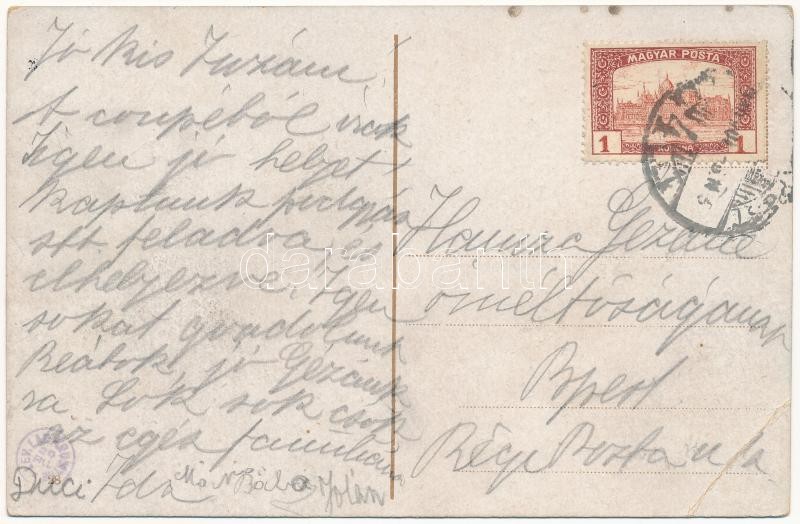 Jó kis Zuzám!
A coupéból irok
Igen jó helyet
kaptunk podgyász
stt feladva, és
elhelyezve. Igen
sokat gondolunk
Reátok, jó Gézánk
ra Sok sok csók
az egész familiának
Duci Ida Bába Jolán
MAGYAR POSTA
1 KORONA 1
Géządné
őméltóságának
Bpest
Régi Posta u
darabanth
28